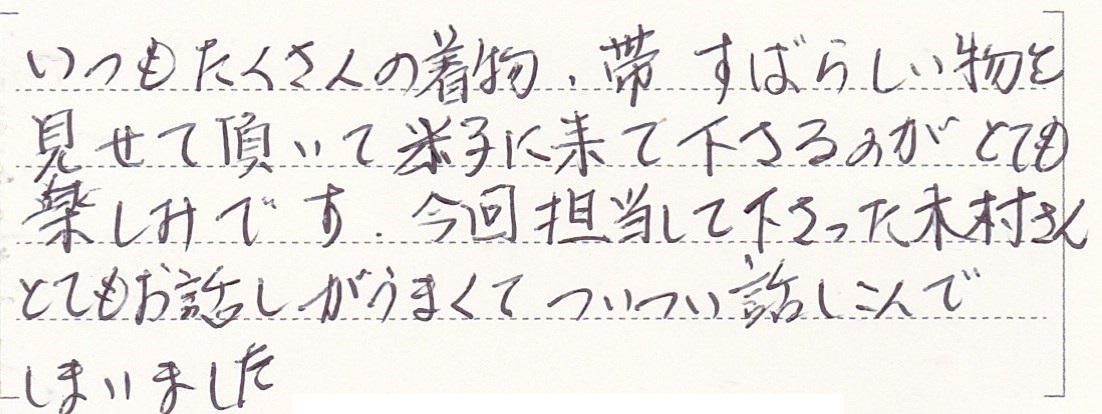 いつもたくさんの着物、帯 すばらしい物を
見せて頂いて米子に来て下さるのがとても
楽しみです。今回担当して下さった木村さん
とてもお話しがうまくてついつい話しこんで
しまいました